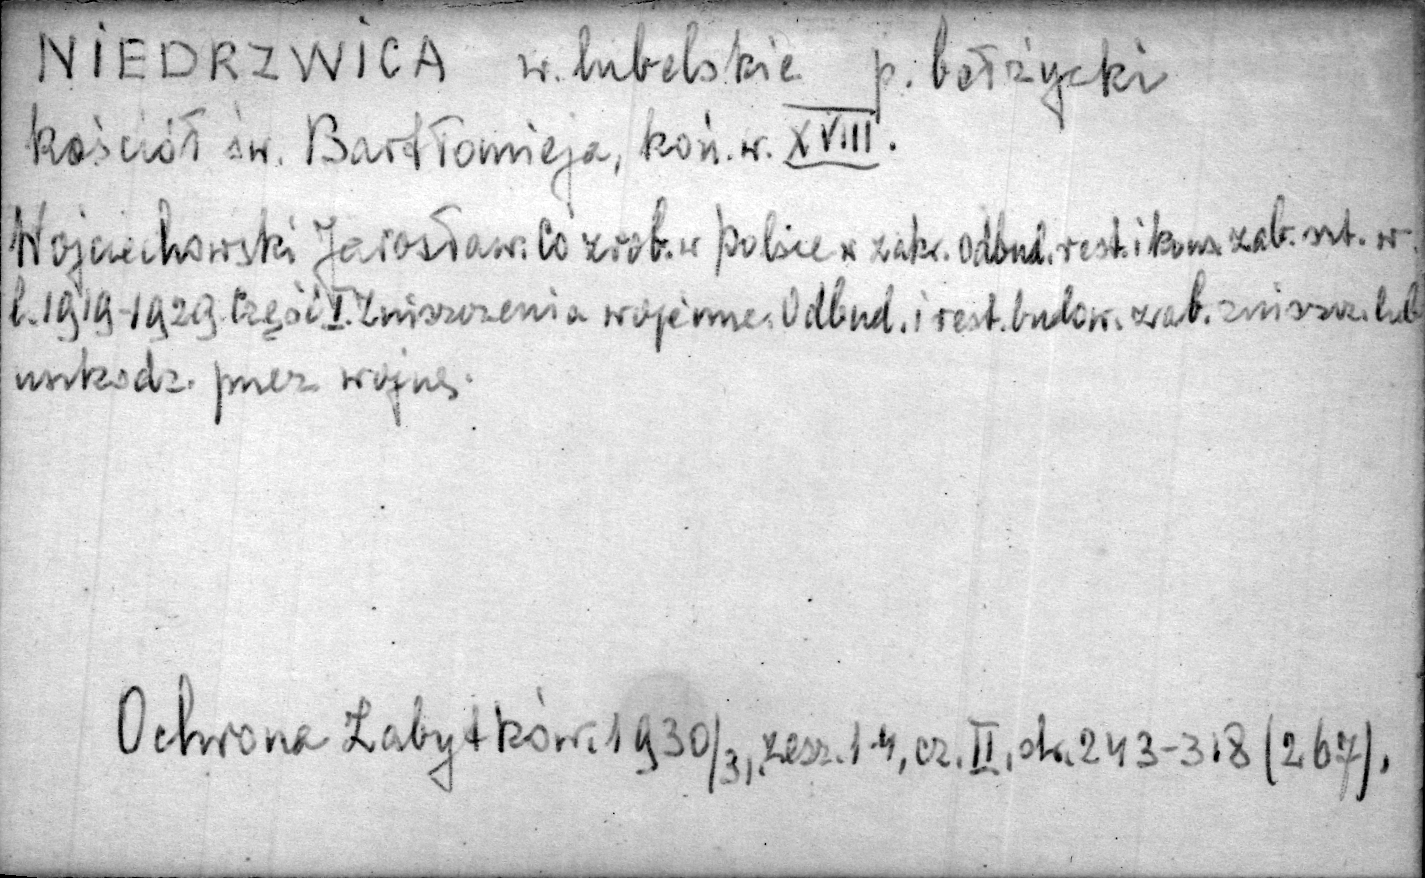 NIEDRZWICA w. lubelskie p. bełżycki
kościół św. Bartłomieja, koń. w. XVIII.
Wojciechowski Jarosław. Co zrob. w Polsce w zakr. odbud. rest. i kons. zab. szt. w
l. 1919-1929. Część I. Zniszczenia wojenne. Odbud. i rest. budow. zab. zniszcz. lub
uszkodz. przez wojnę.
Ochrona Zabytków. 1930/3, zesz. 1-4, cz. II, str. 243-318 (267).